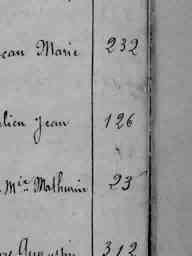 ean Marie 232
lien Jean 126
Mie Mathurin 23
Augustin 312